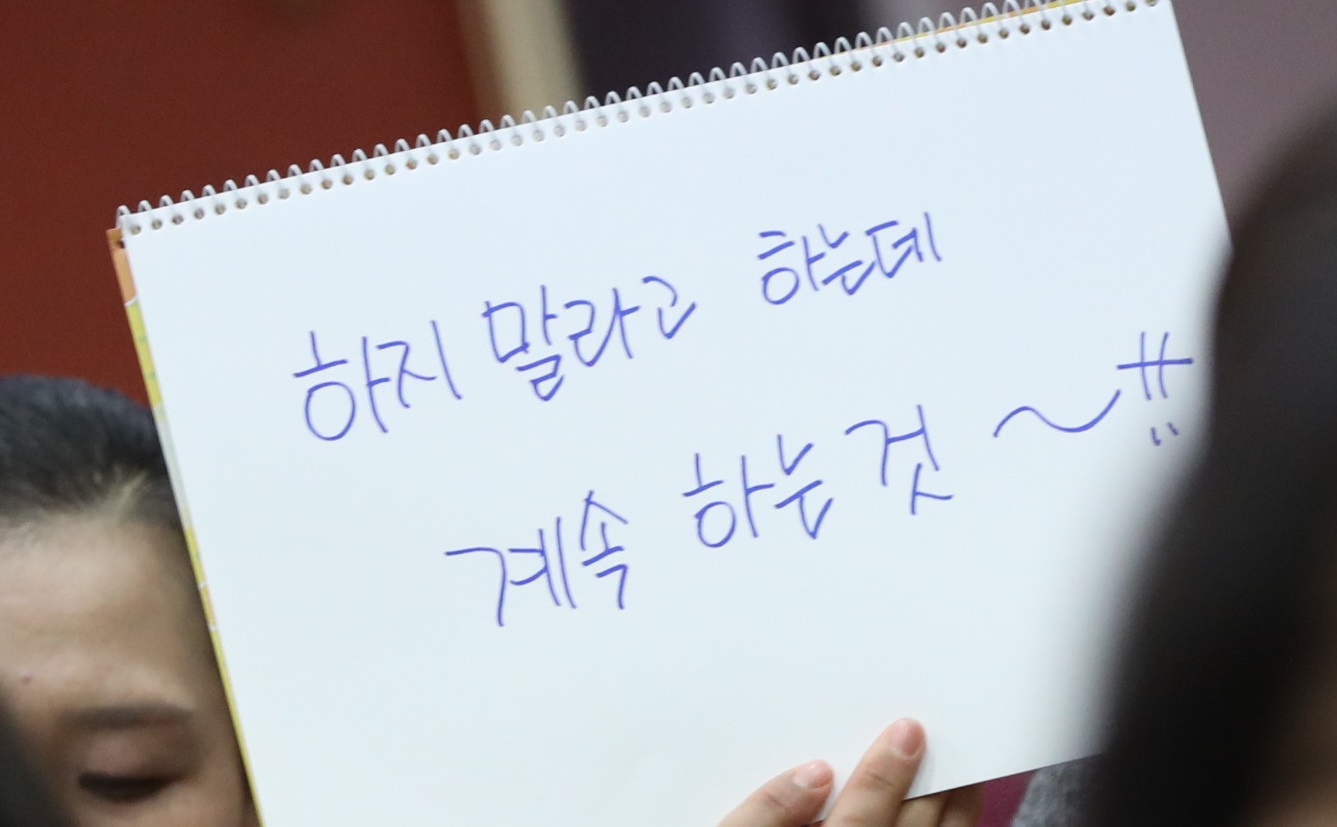 하지 말라고 하는데
계속 하는것 ~!!